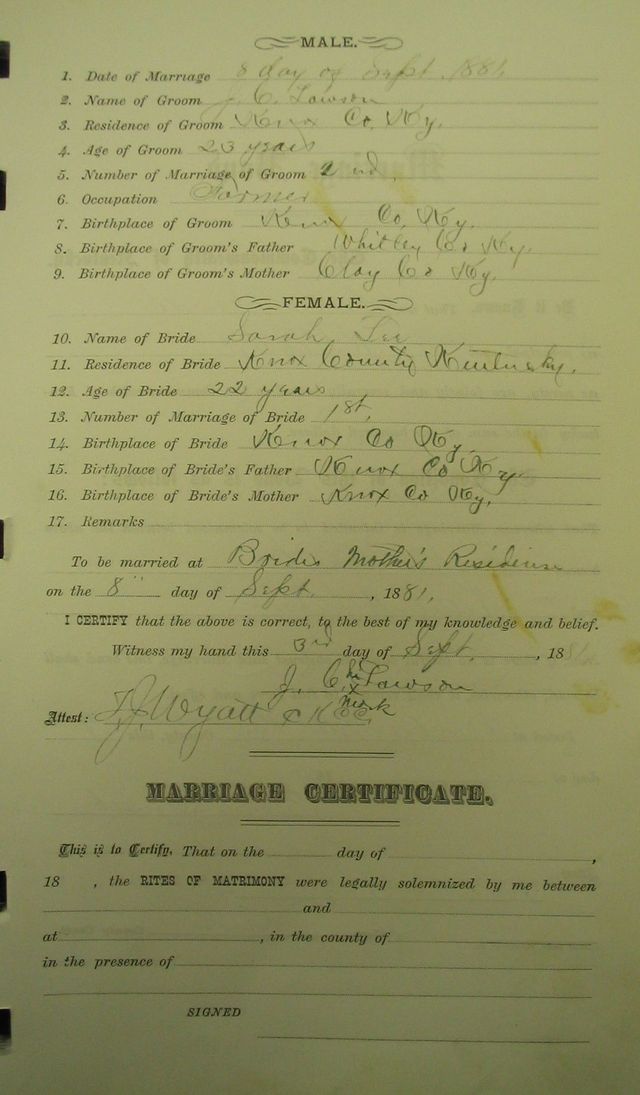 MALE.
1. Date of Marriage 8 day of Sept. 1881.
2. Name of Groom J. C. Lawson
3. Residence of Groom Knox Co. Ky.
4. Age of Groom 23 years
5. Number of Marriage of Groom 2nd.
6. Occupation Farmer
7. Birthplace of Groom Knox Co. Ky.
8. Birthplace of Groom's Father Whitley Co Ky.
9. Birthplace of Groom's Mother Clay Co Ky.
FEMALE.
10. Name of Bride Sarah Lee
11. Residence of Bride Knox County Kentucky.
12. Age of Bride 22 years
13. Number of Marriage of Bride 1st.
14. Birthplace of Bride Knox Co Ky.
15. Birthplace of Bride's Father Knox Co Ky.
16. Birthplace of Bride's Mother Knox Co Ky.
17. Remarks
To be married at Brides Mother's Residence
on the 8" day of Sept. , 1881.
I CERTIFY that the above is correct, to the best of my knowledge and belief.
Witness my hand this 3rd day of Sept. , 1881.
J. C. his x Lawson
mark
Attest: J. J. Wyatt
MARRIAGE CERTIFICATE.
This is to Certify, That on the day of ,
18 , the RITES OF MATRIMONY were legally solemnized by me between
and
at , in the county of
in the presence of
SIGNED